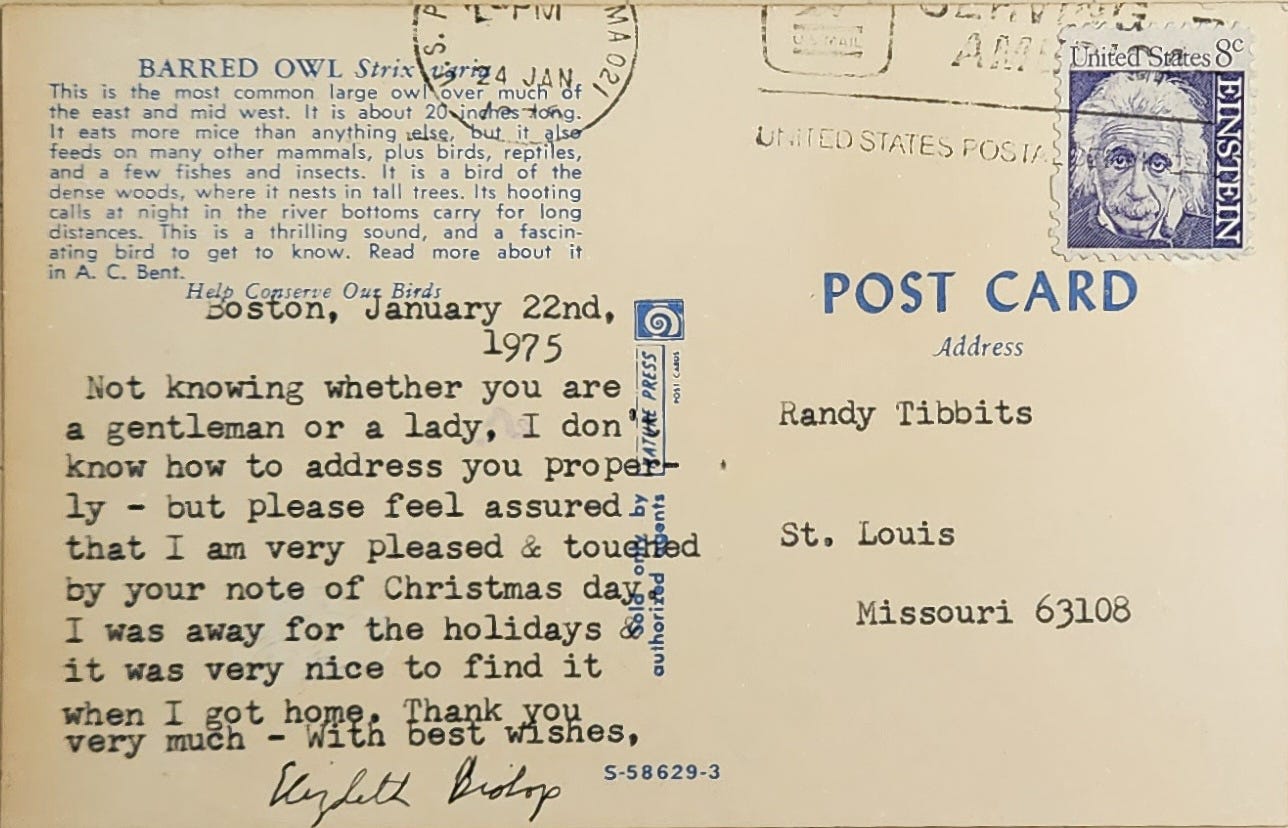 BARRED OWL Strix varia
This is the most common large owl over much of
the east and mid west. It is about 20 inches long.
It eats more mice than anything else, but it also
feeds on many other mammals, plus birds, reptiles,
and a few fishes and insects. It is a bird of the
dense woods, where it nests in tall trees. Its hooting
calls at night in the river bottoms carry for long
distances. This is a thrilling sound, and a fascin-
ating bird to get to know. Read more about it
in A. C. Bent.
Help Conserve Our Birds
Boston, January 22nd,
1975
Not knowing whether you are
a gentleman or a lady, I don'
know how to address you proper-
ly - but please feel assured
that I am very pleased & touched
by your note of Christmas day.
I was away for the holidays &
it was very nice to find it
when I got home. Thank you
very much - With best wishes,
Elizabeth Bishop
S-58629-3
NATURE PRESS
POST CARDS
Sold only by
authorized agents
PM
MA 021
24 JAN
U.S. MAIL
SERVING
UNITED STATES POSTAL
United States 8c
EINSTEIN
POST CARD
Address
Randy Tibbits
St. Louis
Missouri 63108